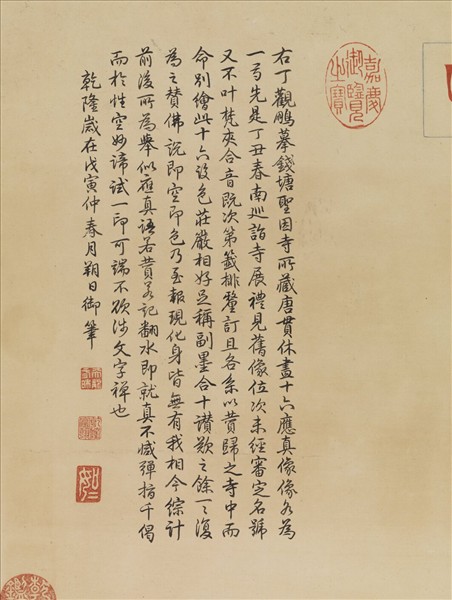 嘉慶御覽之寶
右丁觀鵬摹錢塘聖因寺所藏唐貫休畫十六應真像像各為
一弓先是丁丑春南巡詣寺展禮見舊像位次未經審定名號
又不叶梵夾合音既次第籤排釐訂且各系以贊歸之寺中而
命別繪此十六設色莊嚴相好足稱副墨合十讚歎之餘一一復
為之贊佛說即空即色乃至報現化身皆無有我相今綜計
前後所為舉似應真語若贊若記翻水即就真不減彈指千偈
而於性空妙諦試一印可端不欲涉文字禪也
乾隆歲在戊寅仲春月朔日御筆